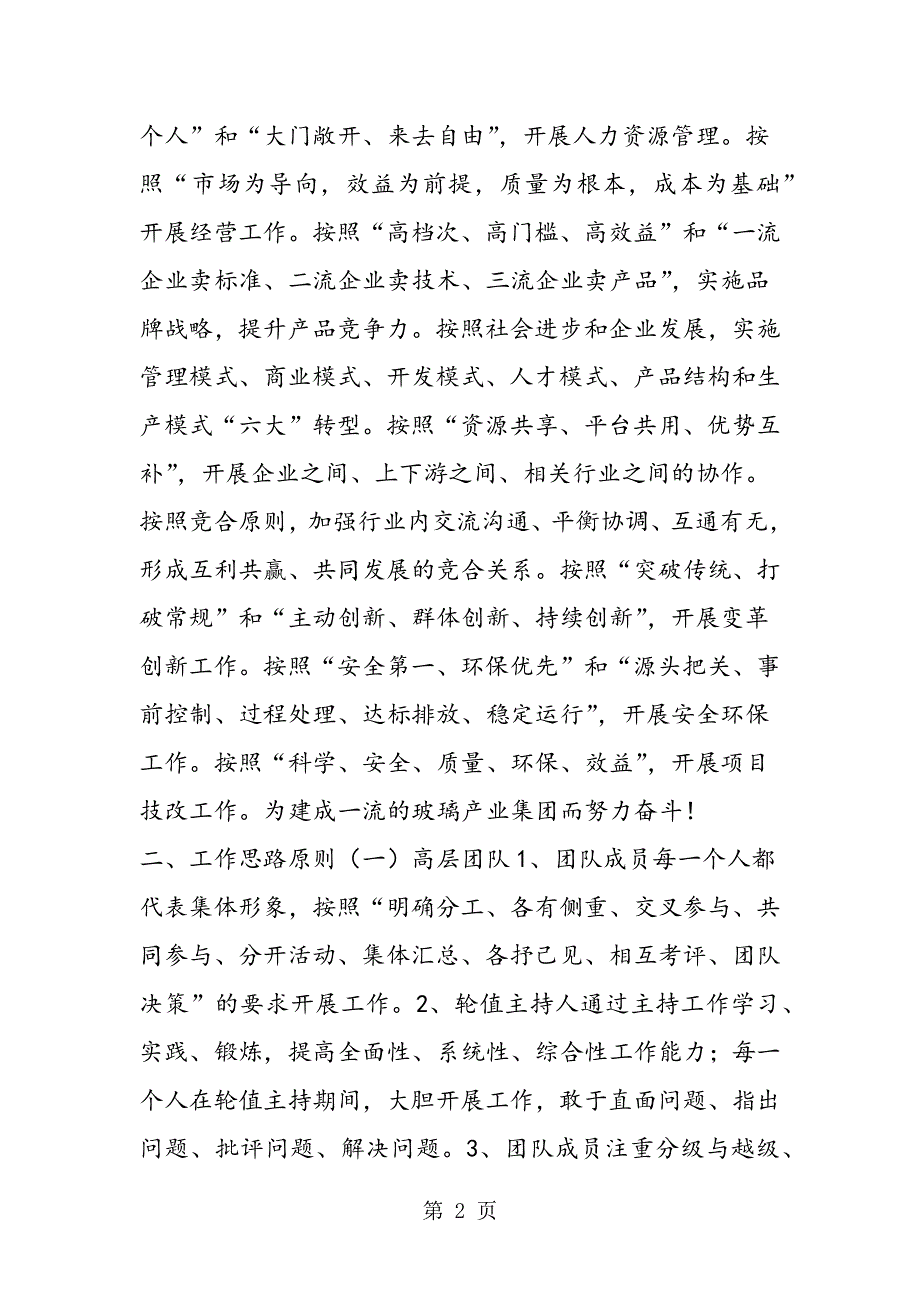 个人”和“大门敞开、来去自由”，开展人力资源管理。按
照“市场为导向，效益为前提，质量为根本，成本为基础”
开展经营工作。按照“高档次、高门槛、高效益”和“一流
企业卖标准、二流企业卖技术、三流企业卖产品”，实施品
牌战略，提升产品竞争力。按照社会进步和企业发展，实施
管理模式、商业模式、开发模式、人才模式、产品结构和生
产模式“六大”转型。按照“资源共享、平台共用、优势互
补”，开展企业之间、上下游之间、相关行业之间的协作。
按照竞合原则，加强行业内交流沟通、平衡协调、互通有无，
形成互利共赢、共同发展的竞合关系。按照“突破传统、打
破常规”和“主动创新、群体创新、持续创新”，开展变革
创新工作。按照“安全第一、环保优先”和“源头把关、事
前控制、过程处理、达标排放、稳定运行”，开展安全环保
工作。按照“科学、安全、质量、环保、效益”，开展项目
技改工作。为建成一流的玻璃产业集团而努力奋斗！
二、工作思路原则（一）高层团队 1、团队成员每一个人都
代表集体形象，按照“明确分工、各有侧重、交叉参与、共
同参与、分开活动、集体汇总、各抒己见、相互考评、团队
决策”的要求开展工作。2、轮值主持人通过主持工作学习、
实践、锻炼，提高全面性、系统性、综合性工作能力；每一
个人在轮值主持期间，大胆开展工作，敢于直面问题、指出
问题、批评问题、解决问题。3、团队成员注重分级与越级、
第 2 页